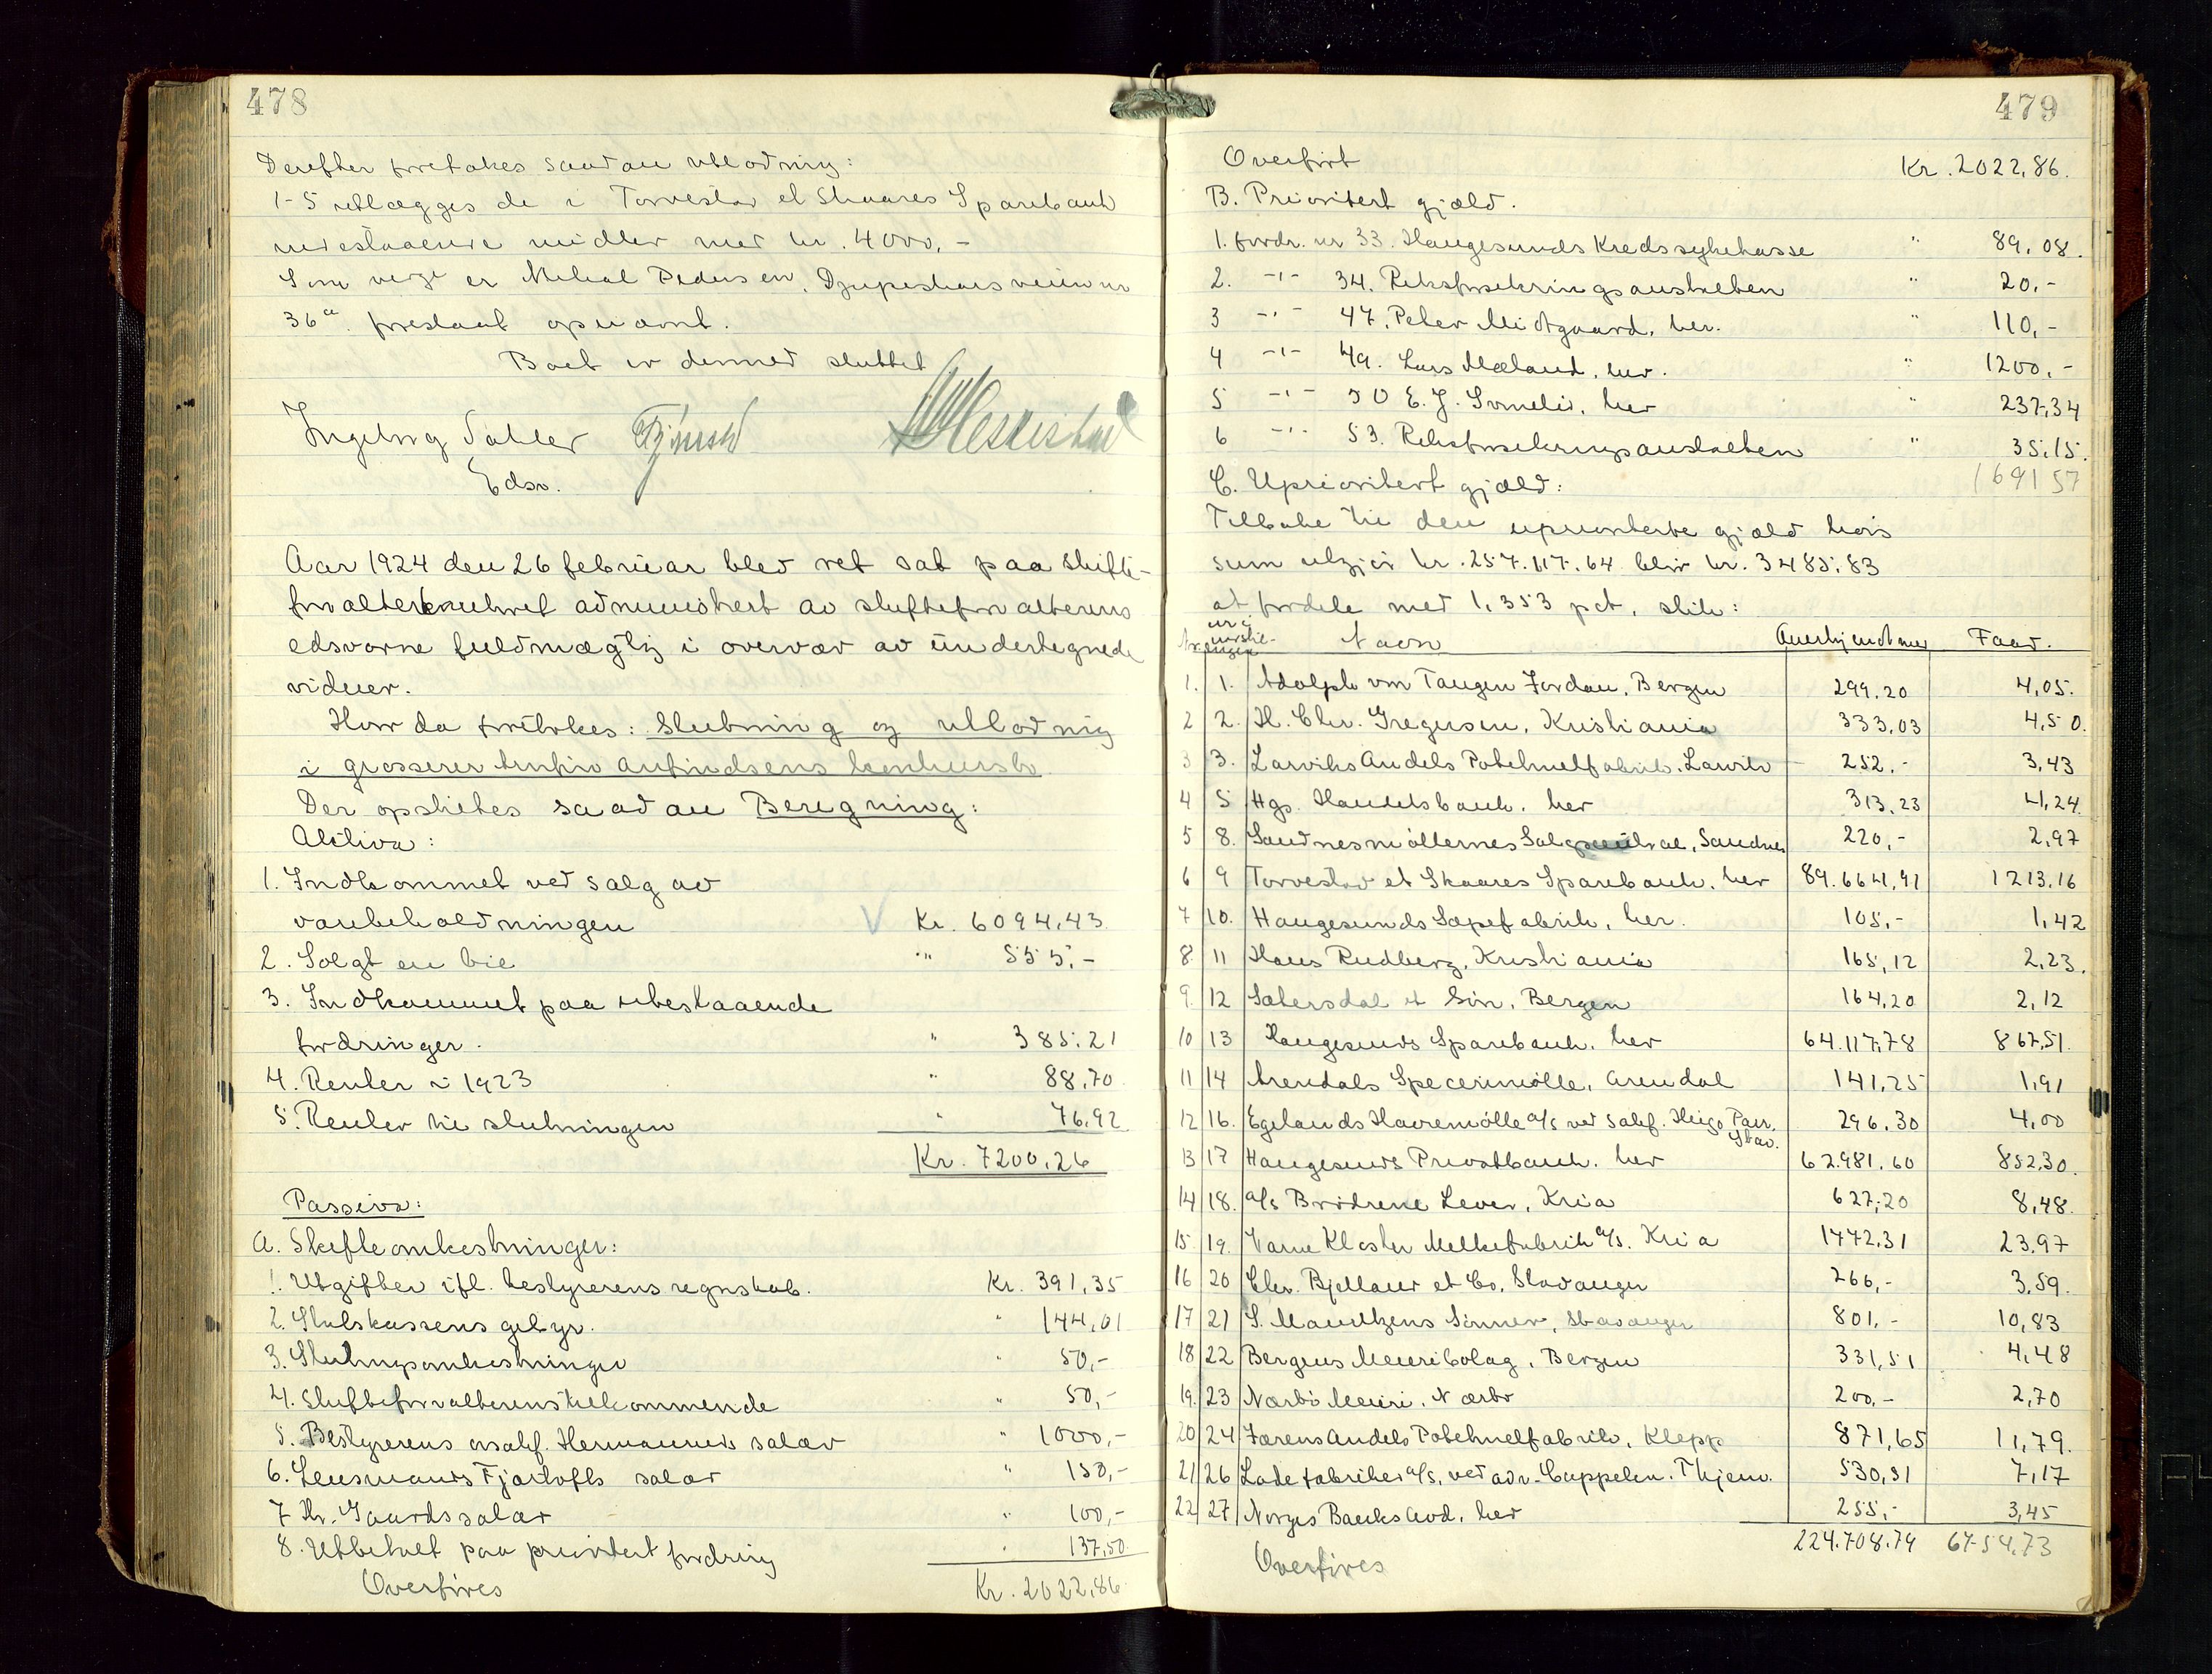 478
Derefter foretakes saadan utlodning:
1-5 utlægges de i Torvestad et Skaares Sparebank
indestaaende midler med kr. 4000,-
Som verge er Mikal Pedersen, Djupesklarsveien nr
36a. foreslaat opnævnt.
Boet er dermed sluttet
Ingeborg Sahler
Edsv.
Aar 1924 den 26 februar blev ret sat paa skifte-
forvalterkontoret administrert av skifteforvalterens
edsvorne fuldmægtig i overvær av undertegnede
vidner.
Hvor da foretokes: Slutning og utlodning
i grosserer Arnfin Arnfindsens konkursbo
Der opstilles saadan Beregning:
Aktiva:
1. Indkommet ved salg av
varebeholdningen Kr. 6094,43
2. Solgt en bil " 555,-
3. Indkommet paa utestaaende
fordringer. " 385,21
4. Renter i 1923 " 88,70
5. Renter til slutningen " 76,92
Kr. 7200,26
Passiva:
A. Skifteomkostninger:
1. Utgifter ifl. bestyrerens regnskab. Kr. 391,35
2. Statskassens gebyr. " 144,01
3. Slutningsomkostninger " 50,-
4. Skifteforvalterens tilkommende " 50,-
5. Bestyrerens o.r.sakf. Hermansens salær " 1000,-
6. Lensmands Fjortofts salær " 150,-
7 Hr. Gaards salær " 100,-
8. Utbetalt paa prioritert fordring " 137,50
Overføres Kr. 2022,86
479
Overført Kr. 2022,86.
B. Prioritert gjæld.
1. fordr. nr 33. Haugesunds Kredssykekasse " 89,08.
2. -"- 34. Riksforsikringsanstalten " 20,-
3 -"- 47. Peder Midtgaard, her. " 110,-
4 -"- 49. Lars Mæland, her. " 1200,-
5 -"- 50 E. J. Svendli, her " 237,34
6 -"- 53. Riksforsikringsanstalten " 35,15.
1691 57
C. Uprioritert gjæld:
Tilbake til den uprioriterte gjæld hvis
sum utgjør kr. 257.117.64 blir kr. 3485,83
at fordele med 1,353 pct. slik:
Nr. nr i anmeldelsen Navn Anerkjendt med Faar.
1. 1. Adolph von Tangen Jordan, Bergen 299,20 4,05.
2 2. H. Chr. Gregersen, Kristiania 333,03 4,50.
3 3. Larviks Andels Potetmelfabrik, Larvik 252,- 3,43
4 5 Hgs. Handelsbank, her 313,23 4,24.
5 8. Sandnesmøllernes Salgscentral, Sandnes 220,- 2,97
6 9 Torvestad et Skaares Sparebank, her 89.664,91 1213,16
7 10. Haugesunds Sæpefabrik, her. 105,- 1,42
8 11 Hans Rudberg, Kristiania 165,12 2,23.
9. 12 Sætersdal et Søn, Bergen 164,20 2,12
10 13 Haugesunds Sparebank, her 64.117,78 867,51.
11 14 Arendals Specerimølle, Arendal 141,25 1,91
12 16. Egelands Havremølle a/s ved sakf. Heigs Parr. Stav. 296,30 4,00
13 17 Haugesunds Privatbank, her 62.981,60 852,30.
14 18. a/s Brødrene Lever, Kria 627,20 8,48.
15 19. Varne Kloster Melkefabrik a/s. Kria 1772,31 23,97
16 20 Chr. Bjelland et Co, Stavanger 266,- 3,59.
17 21 S. Mauritzens Sønner, Stavanger 801,- 10,83
18 22 Bergens Meieribolag, Bergen 331,51 4,48
19. 23 Nærbø Meieri, Nærbø 200,- 2,70
20 24 Jærens Andels Potetmelfabrik, Klepp 871,65 11,79.
21 26 Lade fabriker a/s, ved adv. Cappelen, Thjem. 530,31 7,17
22 27 Norges Banks Avd, her 255,- 3,45
224.708.74 6754,73
Overføres